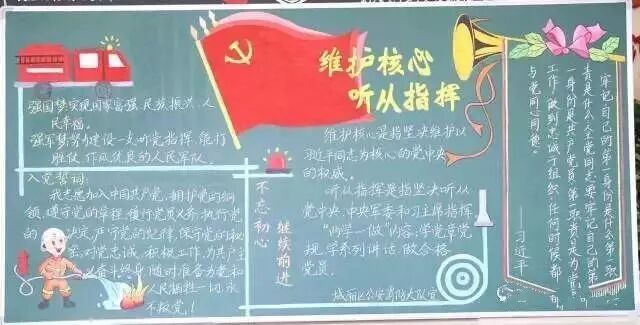 维护核心
听从指挥
强国梦实现国家富强、民族振兴、人
民幸福。
强军梦努力建设一支听党指挥、能打
胜仗、作风优良的人民军队。
入党誓词：
我志愿加入中国共产党，拥护党的纲
领，遵守党的章程，履行党员义务，执行党的
决定，严守党的纪律，保守党的秘
密，对党忠诚，积极工作，为共产主
义奋斗终身，随时准备为党和
人民牺牲一切，永
不叛党！
不忘初心
继续前进
维护核心是指坚决维护以
习近平同志为核心的党中央
的权威。
听从指挥是指坚决听从
党中央、中央军委和习主席指挥
"两学一做"内容：学党章党
规、学系列讲话，做合格
党员。
牢记自己的第一身份是什么、第一职
责是什么，全党同志要牢记自己的第
一身份是共产党员，第一职责是为党
工作，做到忠诚于组织，任何时候都
与党同心同德。
习近平
公安消防大队宣